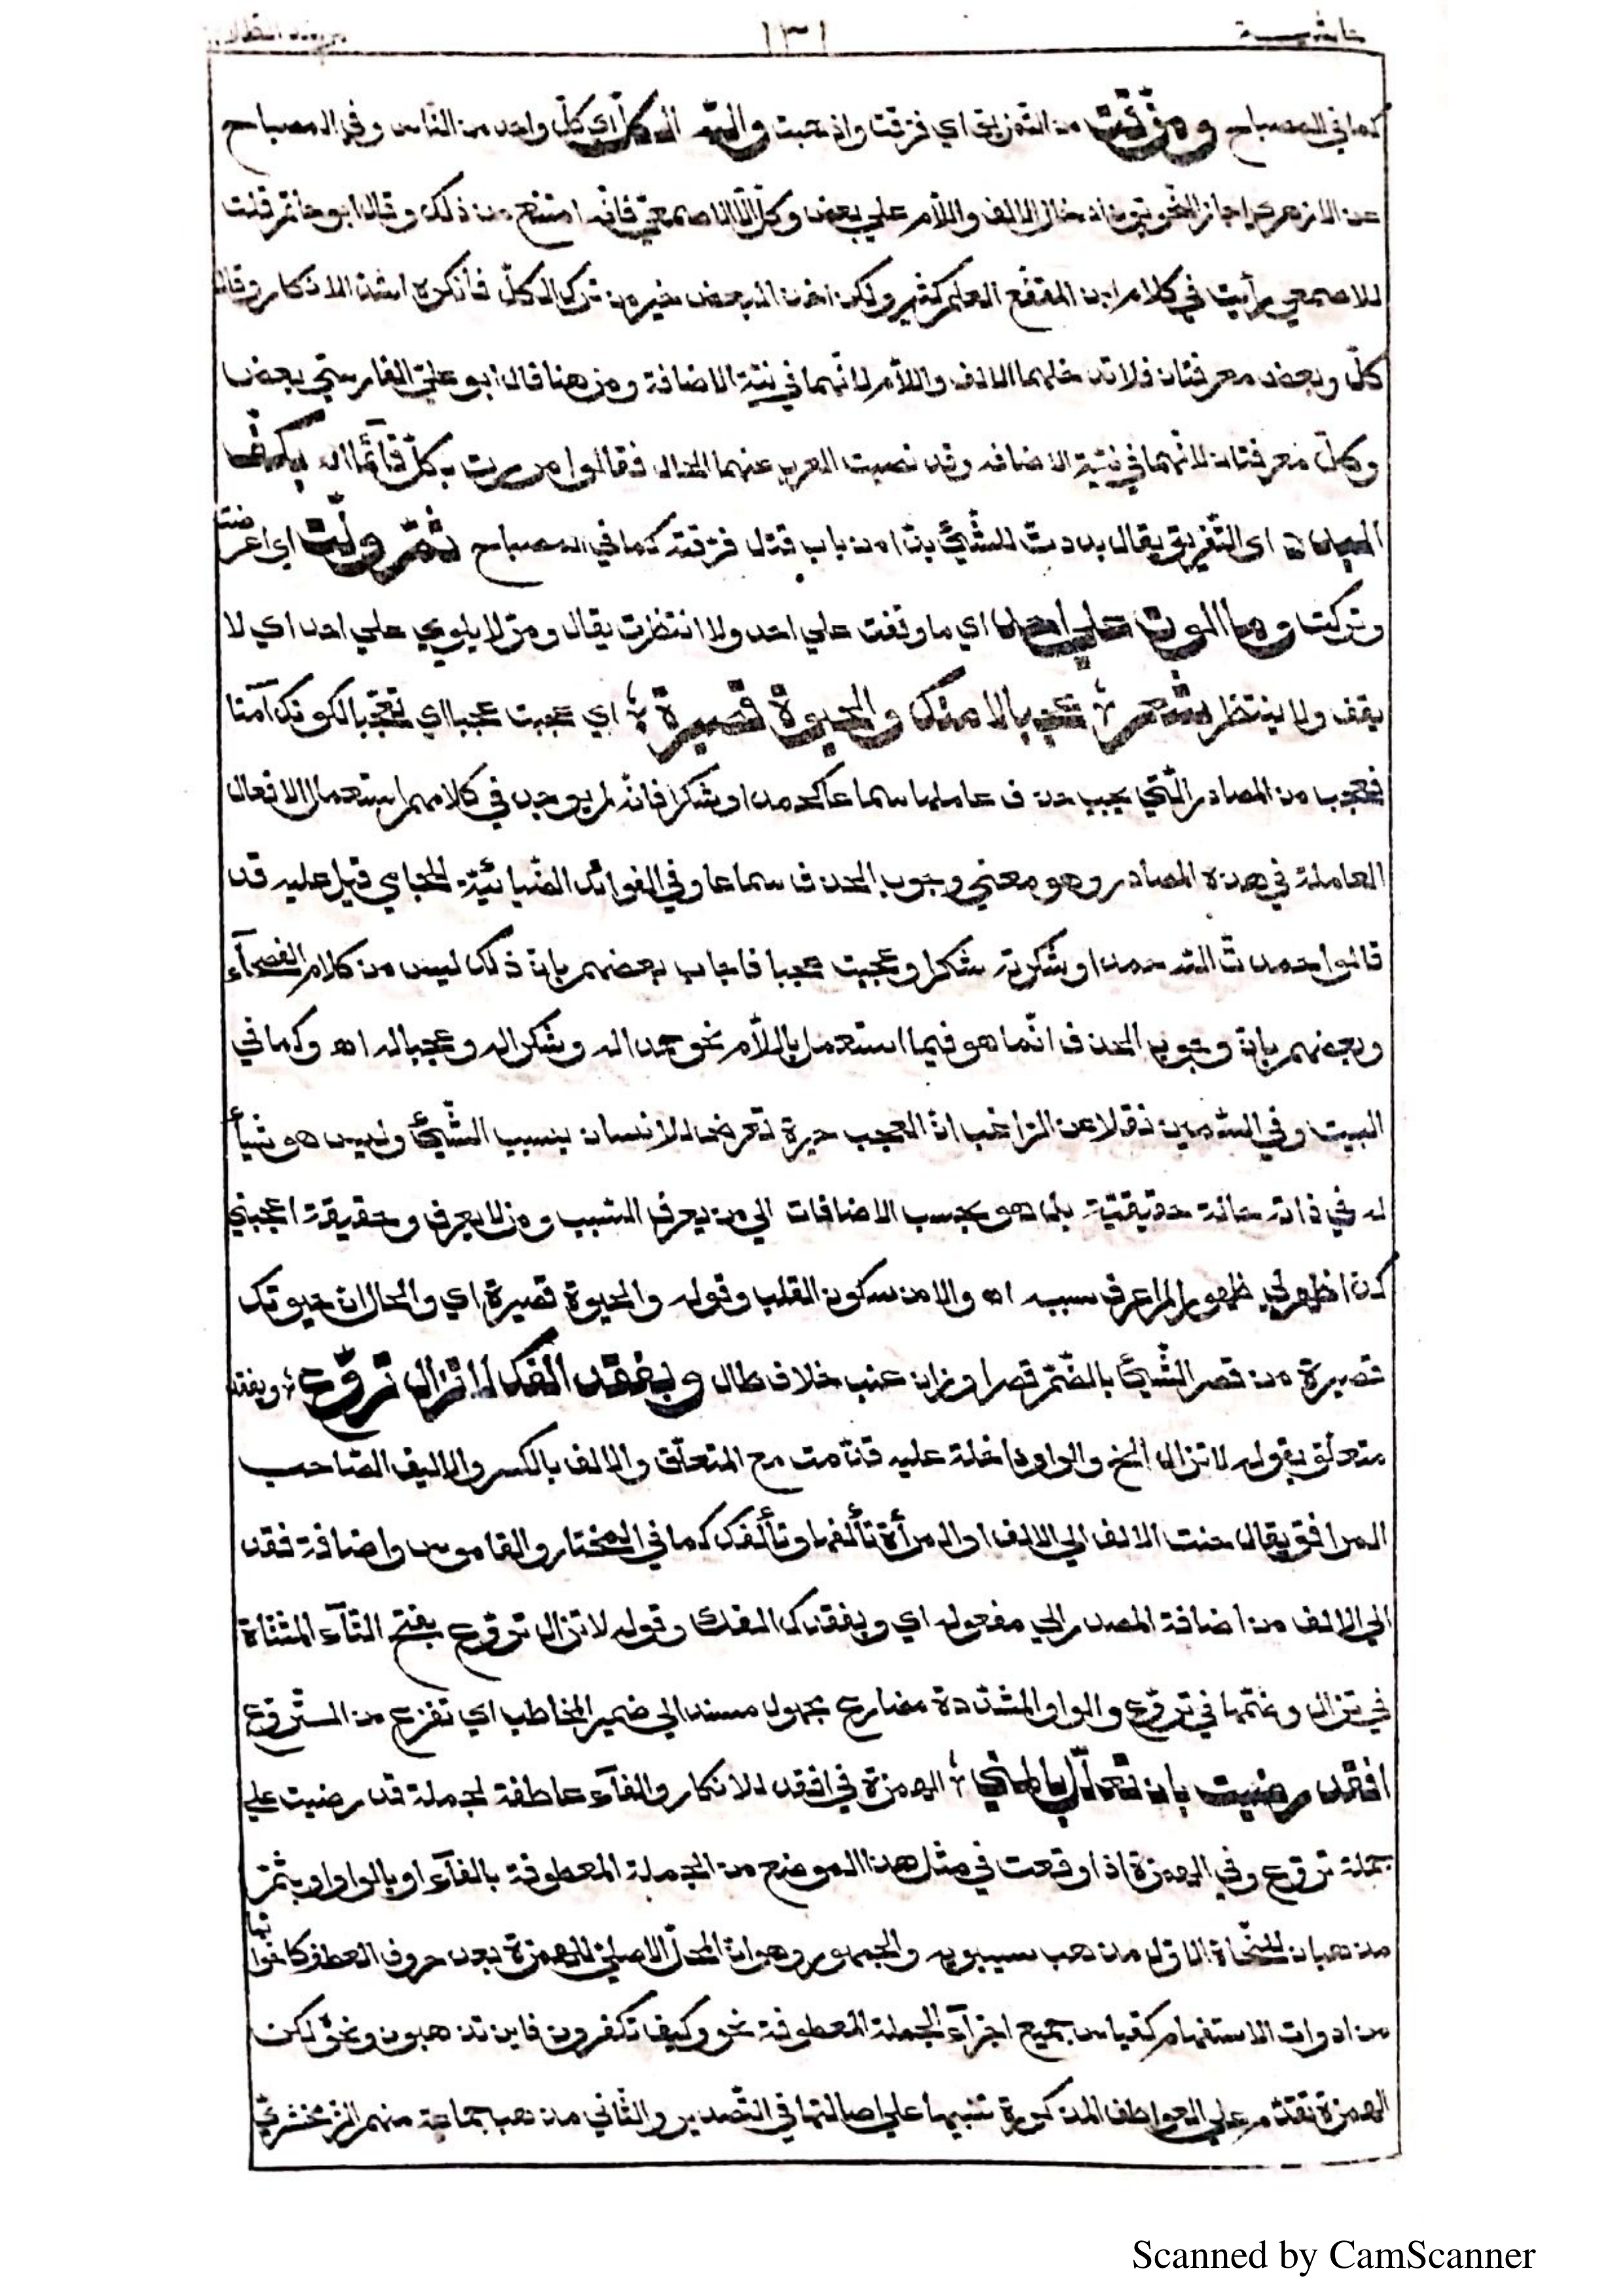 حاشية ١٣١
كما في المصباح ومزقت من التمزيق اي فرقت واذهبت والله الكل اي كل واحد من الناس وفي المصباح
عن الازهري اجاز النحويون ادخال الالف واللام علي بعض وكل الا الاصمعي فانه امتنع من ذلك وقال ابو حاتم قلت
للاصمعي رأيت في كلام ابن المقفع العلم كثير ولكن اخذ البعض خير من ترك الكل فأنكره اشد الانكار وقال
كل وبعض معرفتان فلا تدخلهما الالف واللام لانهما في نية الاضافة ومن هنا قال ابو علي الفارسي بعض
وكل معرفتان لانهما في نية الاضافه وقد نصبت العرب عنهما الحال فقالوا مررت بكل قآئما اه بكف
اي التفريق يقال بددت الشئ بدا من باب قتل فرقته كما في المصباح ثم ولت اي اعرضت
وتركت وما الوت علي احد اي ما وقفت علي احد ولا انتظرت يقال ومر لا يلوي علي احد اي لا
يقف ولا ينتظر شعر عجبا لامنك والحيوة قصيرة اي عجبت عجبا اي تعجبا لكونك آمنا
فعجبا من المصادر التي يجب حذف عاملها سماعا كحمدا وشكرا فانه لم يوجد في كلامهم استعمال الافعال
العاملة في هذه المصادر وهو معني وجوب الحذف سماعا وفي الفوائد الضيائية للجامي قيل عليه قد
قالوا حمدت الله حمدا وشكرته شكرا وعجبت عجبا فاجاب بعضهم بان ذلك ليس من كلام الفصحآء
وبعضهم بان وجوب الحذف انما هو فيما استعمل باللام نحو حمدا له وشكرا له وعجبا له اه وكما في
البيت وفي السمين نقلا عن الراغب ان العجب حيرة تعرض للانسان بسبب الشئ وليس هو شيأ
له في ذاته حالة حقيقية بل هو بحسب الاضافات الي من يعرف السبب ومن لا يعرف وحقيقة اعجبني
كذا ظهر لي ظهورا لم اعرف سببه اه والامن سكون القلب وقوله والحيوة قصيرة اي والحال ان حيوتك
قصيرة من قصر الشئ بالضم قصرا وزان عنب خلاف طال وبفقد الفك لا تزال تروع وبفقد
متعلق بقوله لا تزال الخ والواو داخلة عليه قدمت مع المتعلق والالف بالكسر والاليف الصاحب
المرافق يقال حنت الالف الي الالف او المرأة تألفها وتألفك كما في المختار والقاموس واضافة فقد
الي الالف من اضافة المصدر الي مفعوله اي وبفقدك الفك وقوله لا تزال تروع بفتح التآء المثناة
في تزال وضمها في تروع والواو المشددة مضارع مجهول مسند الي ضمير المخاطب اي تفزع من التروع
افقد رضيت بان تعلل بالمني الهمزة في افقد للانكار والفآء عاطفة لجملة قد رضيت علي
جملة تروع وفي الهمزة اذا وقعت في مثل هذا الموضع من الجملة المعطوفة بالفآء او بالواو او بثم
مذهبان للنحاة الاول مذهب سيبويه والجمهور وهو ان المحل الاصلي للهمزة بعد حروف العطف كاخواتها
من ادوات الاستفهام كقياس جميع اجزآء الجملة المعطوفة نحو وكيف تكفرون فاين تذهبون ونحو لكن
الهمزة تقدم علي العواطف المذكورة تنبيها علي اصالتها في التصدير والثاني مذهب جماعة منهم الزمخشري
Scanned by CamScanner